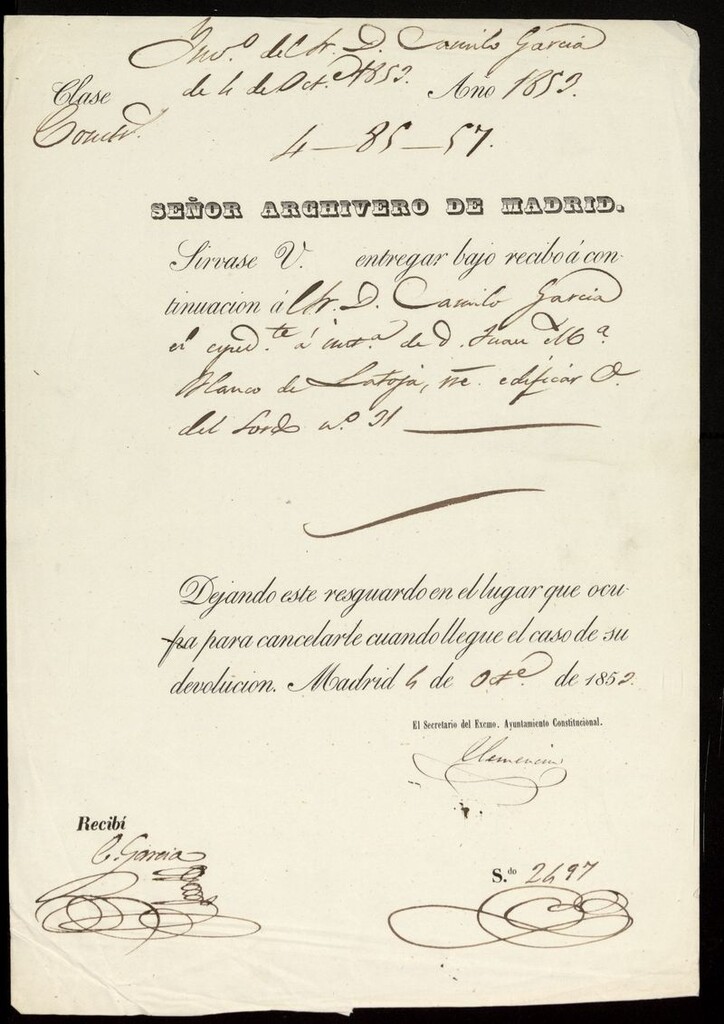 Inv.º del Sr. D. Camilo Garcia
de 4 de Oct.e 1852. Año 1852.
Clase
4-85-57.
SEÑOR ARCHIVERO DE MADRID.
Sirvase V. entregar bajo recibo á con-
tinuacion á l Sr. D. Camilo Garcia
el exped.te á inst.a de D. Juan M.a
Blanco de Latoja, edificar C.
del Sordo n.º 31
Dejando este resguardo en el lugar que ocu-
pa para cancelarle cuando llegue el caso de su
devolucion. Madrid 4 de Oct.e de 1852.
El Secretario del Excmo. Ayuntamiento Constitucional.
Clemencin
Recibí
C. Garcia
S.do 2497